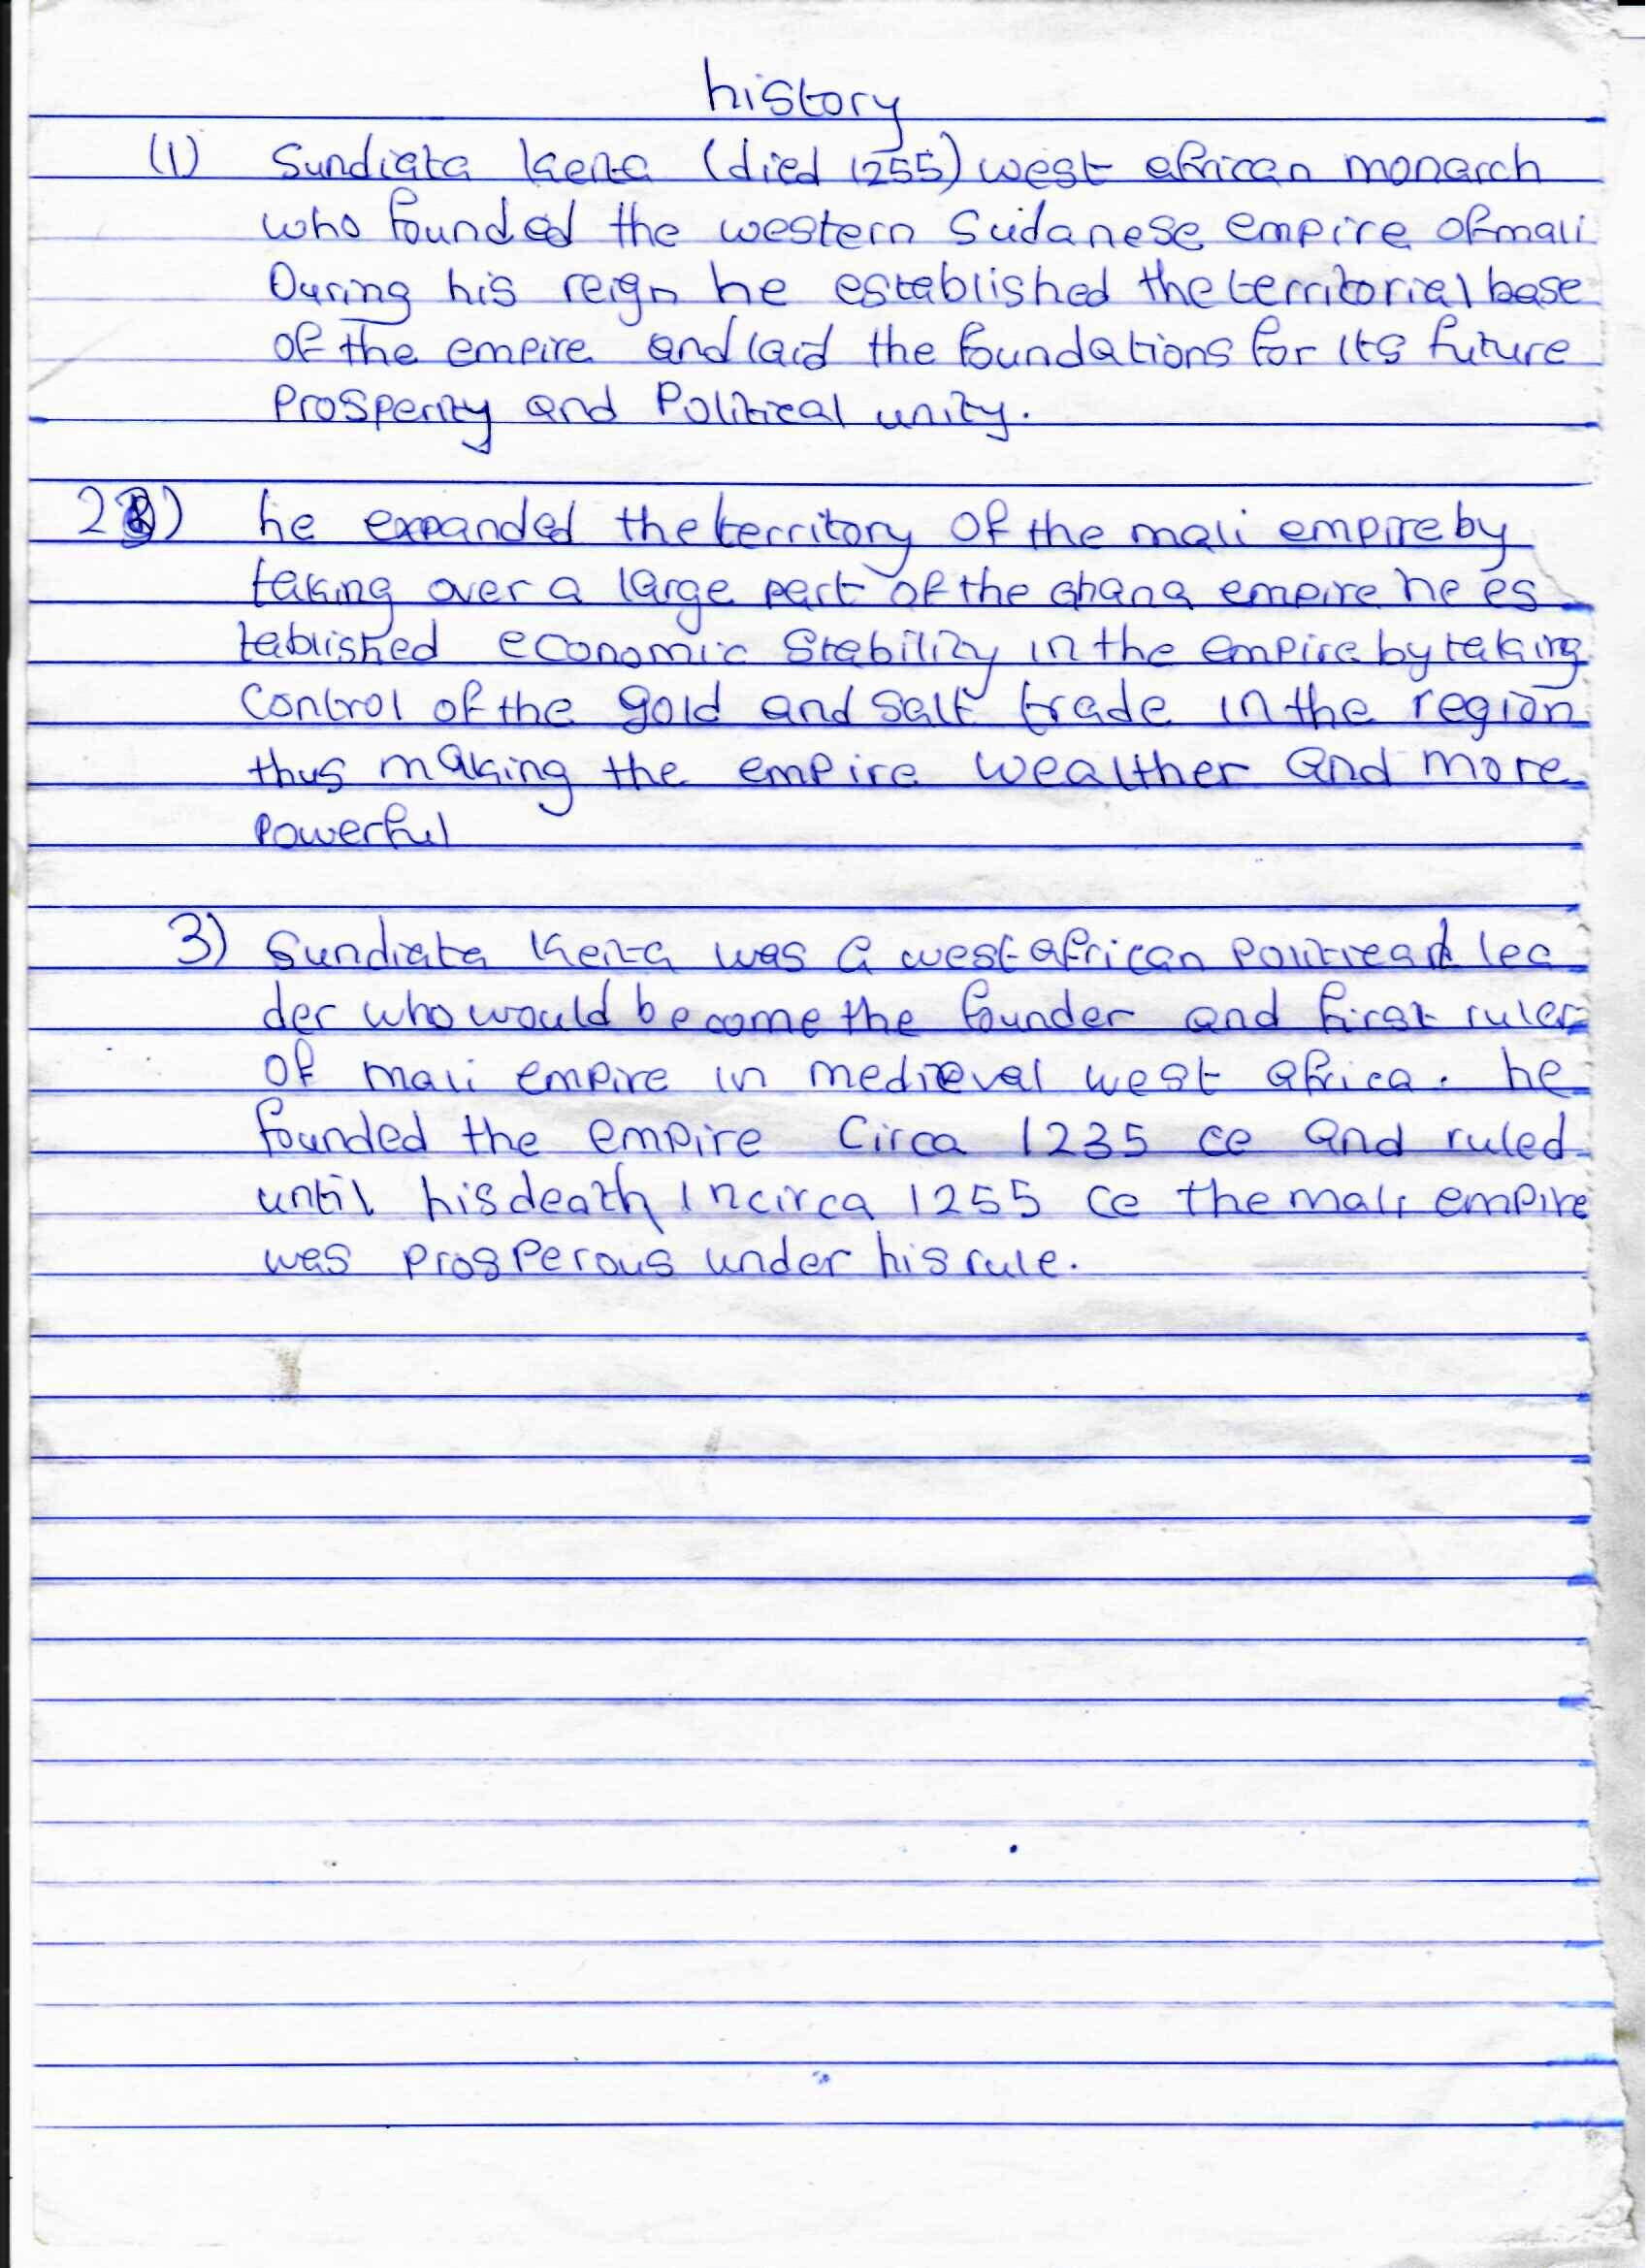 history
(1) Sundiata Keita (died 1255) west african monarch
who founded the western Sudanese empire of mali
During his reign he established the territorial base
of the empire and laid the foundations for its future
Prosperity and Political unity.
2) he expanded the territory of the mali empire by
taking over a large part of the ghana empire he es
tablished economic Stability in the empire by taking
Control of the gold and salt trade in the region
thus making the empire wealther and more
Powerful
3) Sundiata Keita was a west african political lea
der who would become the founder and first ruler
of mali empire in medieval west africa. he
founded the empire Circa 1235 ce and ruled
until his death in circa 1255 ce the mali empire
was prosperous under his rule.